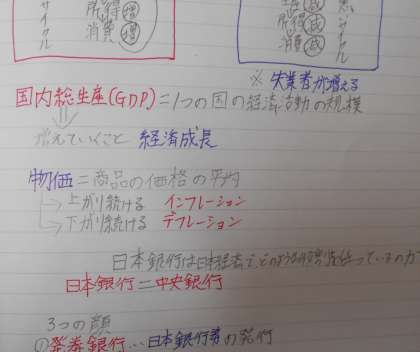 サイクル
所得 増
消費 増
生産 減
所得 減
消費 減
サイクル
※失業者が増える
国内総生産(GDP)=1つの国の経済活動の規模
増えていくこと 経済成長
物価=商品の価格の平均
→上がり続ける インフレーション
→下がり続ける デフレーション
日本銀行は日本経済で、どのような役割を担っているのか
日本銀行=中央銀行
3つの顔
①発券銀行…日本銀行券の発行